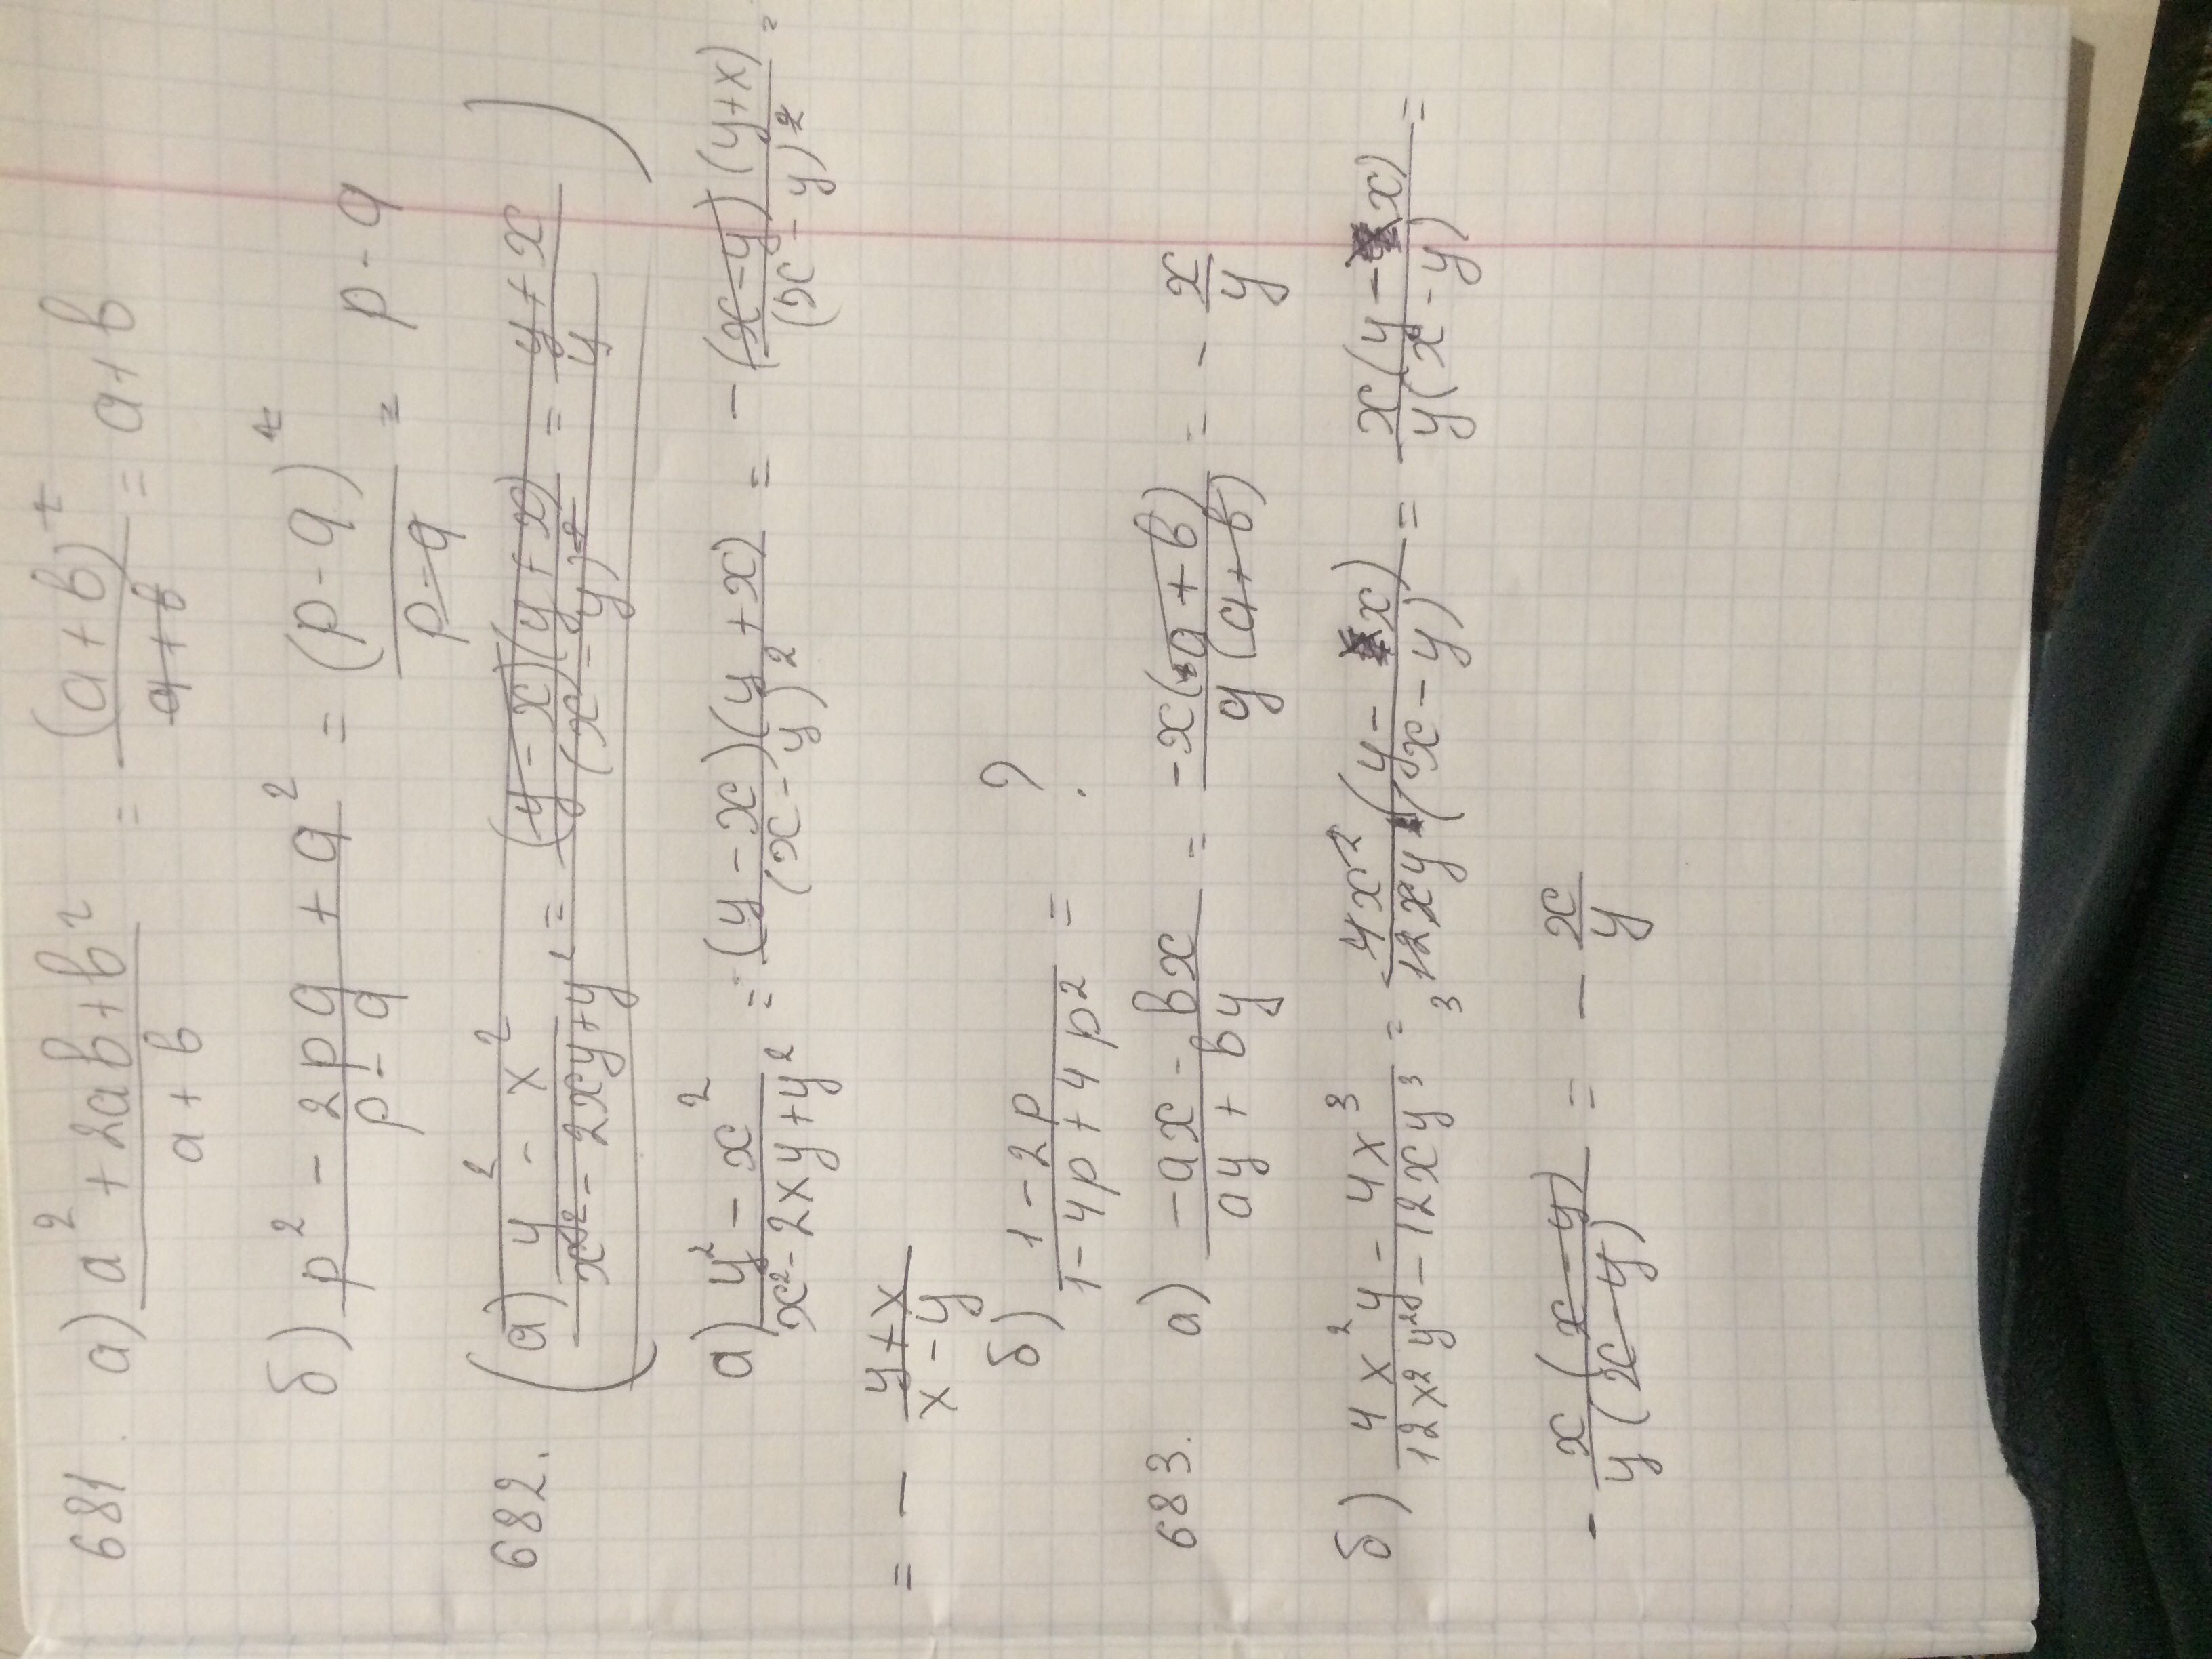 681. а) (a² + 2ab + b²)/(a + b) = (a + b)²/(a + b) = a + b
б) (p² - 2pq + q²)/(p - q) = (p - q)²/(p - q) = p - q
682. (а) (y² - x²)/(x² - 2xy + y²) = (y - x)(y + x)/(x - y)² = (y + x)/y)
а) (y² - x²)/(x² - 2xy + y²) = (y - x)(y + x)/(x - y)² = - (x - y)(y + x)/(x - y)² =
= - (y + x)/(x - y)
б) (1 - 2p)/(1 - 4p + 4p²) = ?
683. а) (-ax - bx)/(ay + by) = -x(a + b)/y(a + b) = - x/y
б) (4x²y - 4x³)/(12x²y² - 12xy³) = 4x²(y - x)/12xy²(x - y) 3 = x(y - x)/y(x - y) =
- x(x - y)/y(x - y) = - x/y